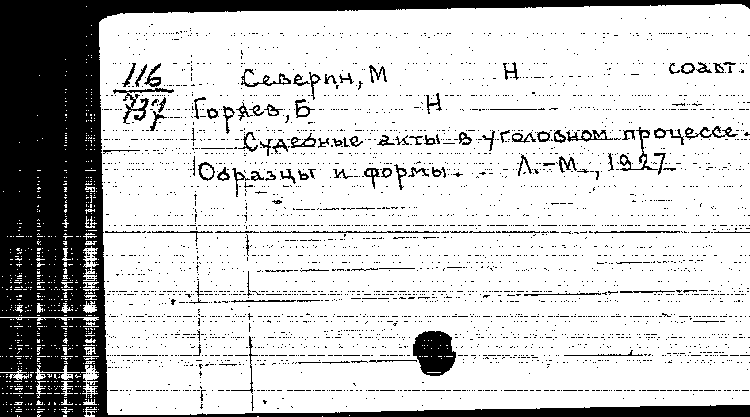 116 Северин, М Н соавт.
737 Горяев, Б Н
Судебные акты в уголовном процессе.
Образцы и формы. Л.-М., 1927